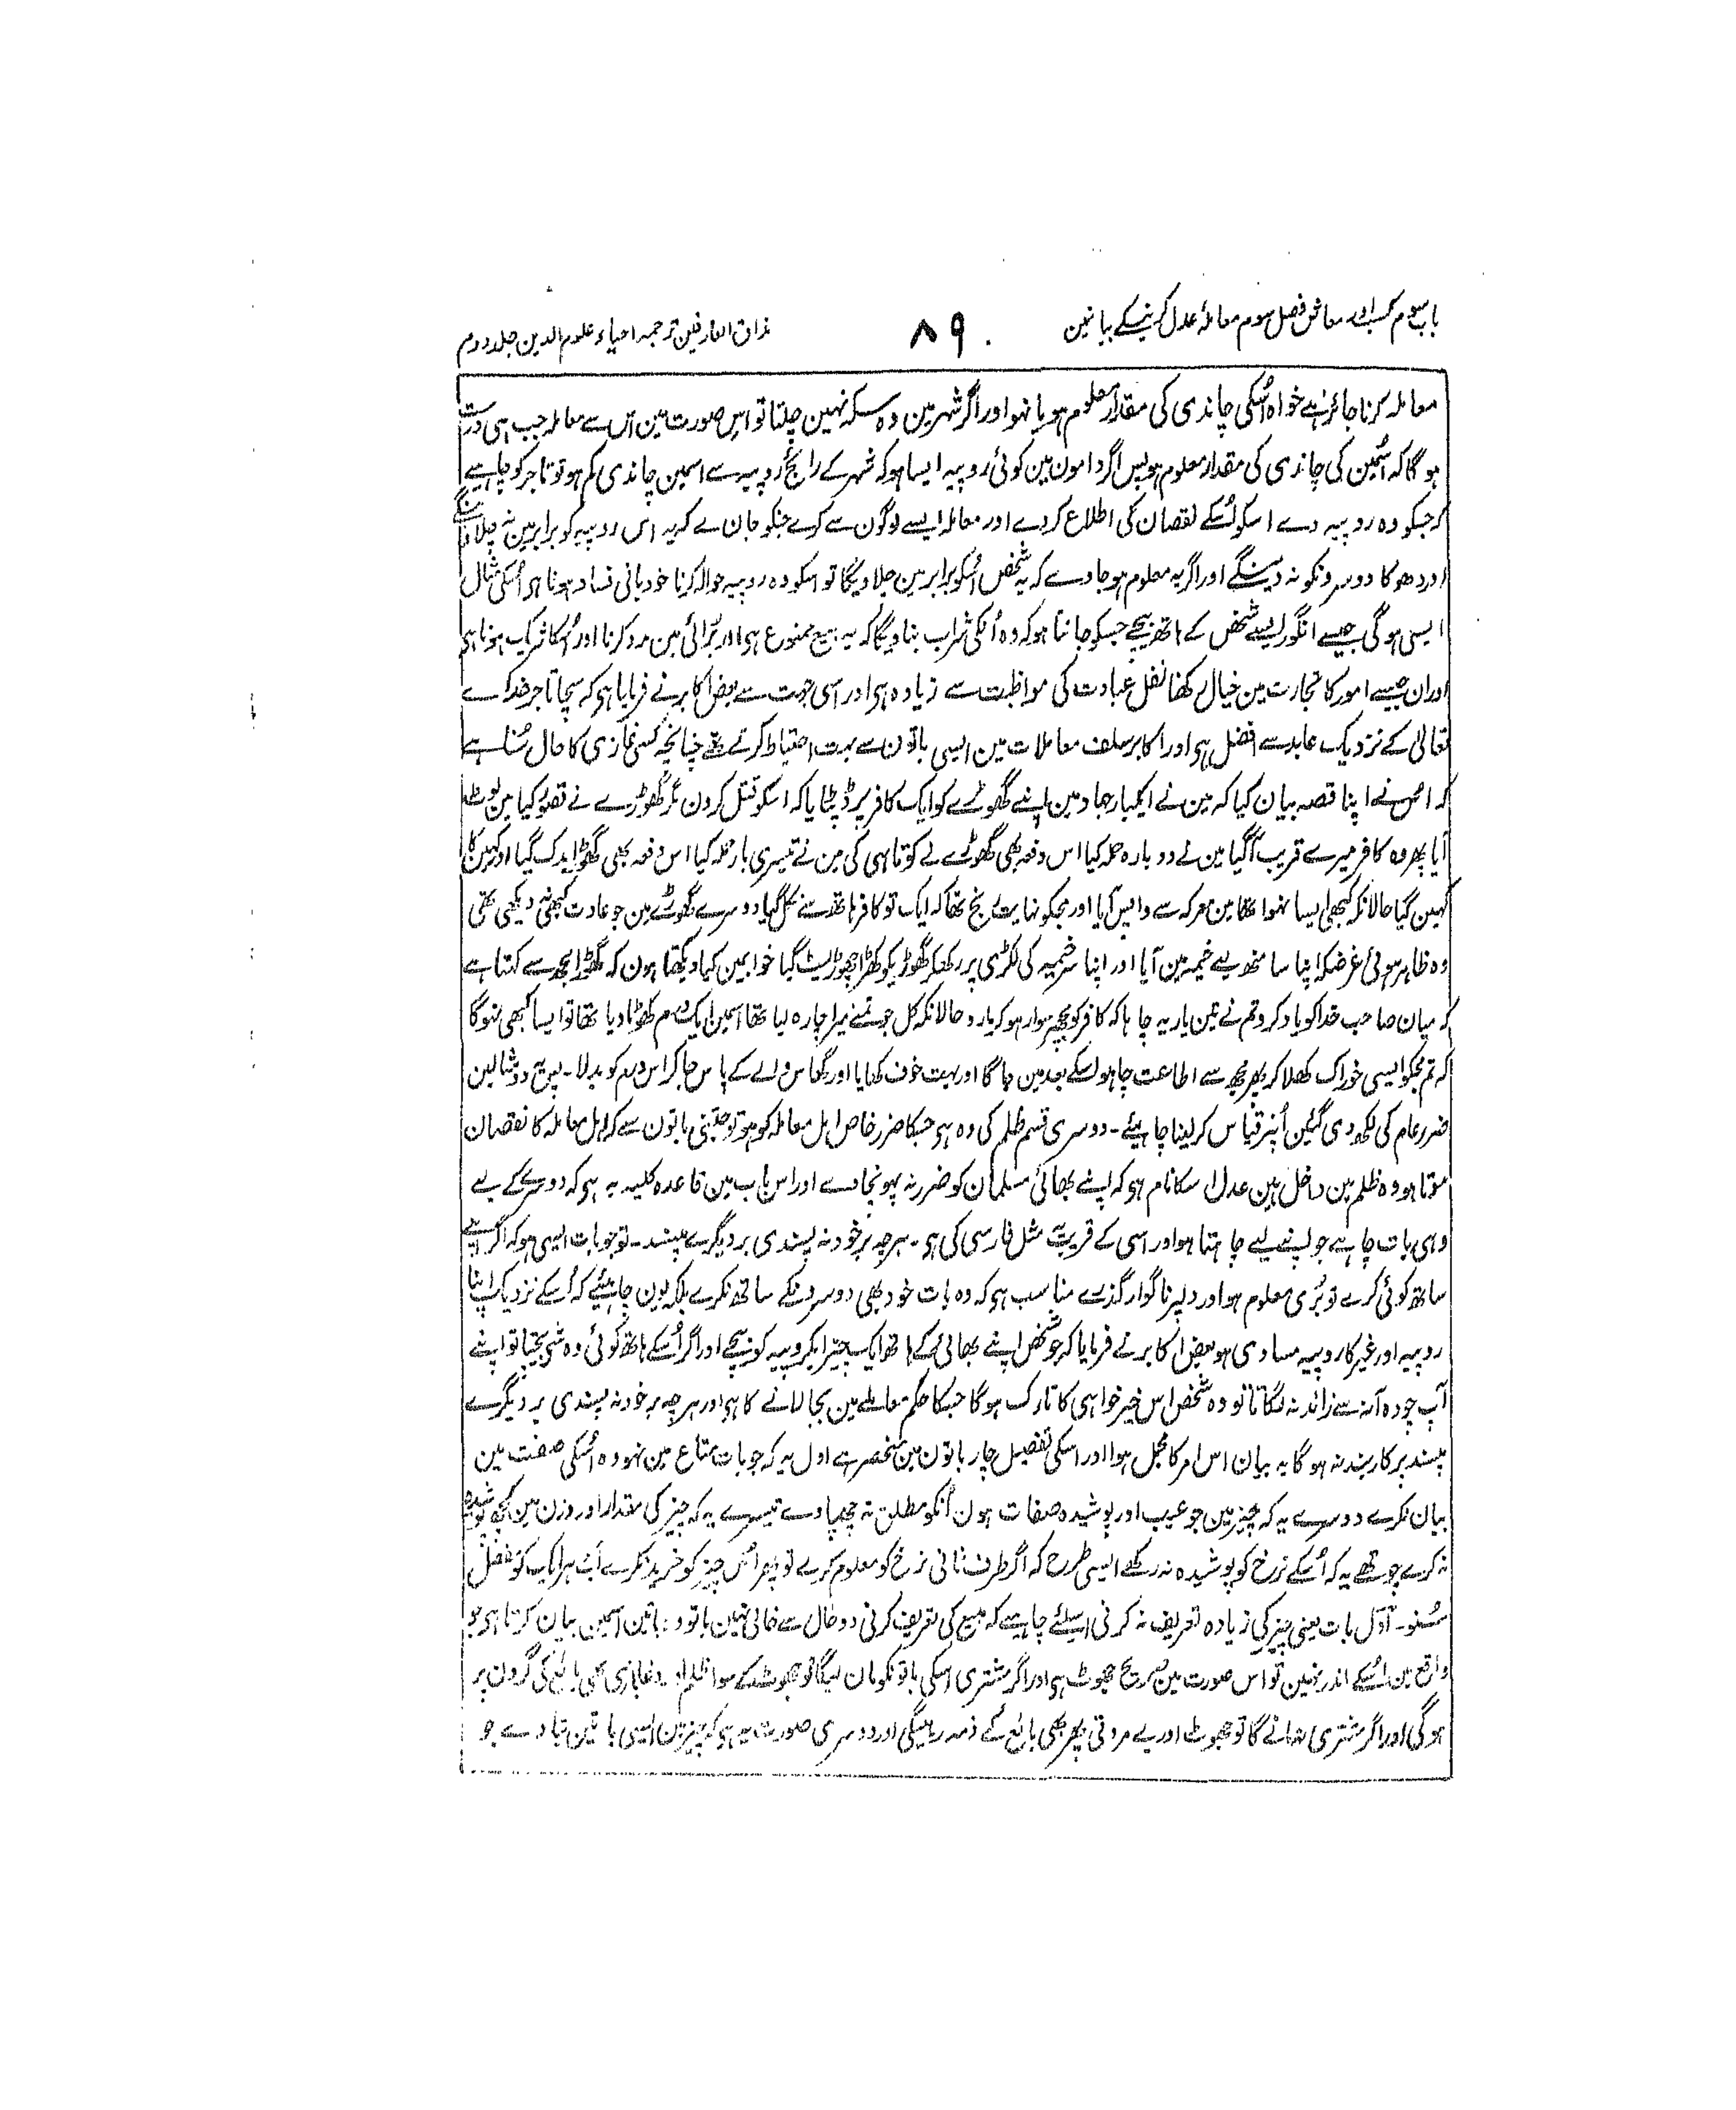 باب سوم کسب اور معاش فصل سوم معاملہ عدل کرنیکے بیانمین
۸۹
مذاق العارفین ترجمہ احیاء علوم الدین جلد دوم
معاملہ کرنا جائز ہے خواہ اُسکی چاندی کی مقدار معلوم ہو یا نہو اور اگر شہر مین وہ سکہ نہین چلتا تو اس صورت مین اس سے معاملہ جب ہی درست
ہوگا کہ اُسمین کی چاندی کی مقدار معلوم ہو پس اگر دامون مین کوئی روپیہ ایسا ہو کہ شہر کے رائج روپیہ سے اسمین چاندی کم ہو تو تاجر کو چاہیے
کہ جسکو وہ روپیہ دے اسکو اُسکے نقصان کی اطلاع کر دے اور معاملہ ایسے لوگون سے کرے جنکو جان لے کہ یہ اس روپیہ کو برابر مین نہ چلاوینگے
اور دھوکا دوسرونکو نہ دینگے اور اگر یہ معلوم ہو جاوے کہ یہ شخص اُسکو برابر مین چلا دیگا تو اسکو وہ روپیہ حوالہ کرنا خود بانی فساد ہونا ہی اُسکی مثال
ایسی ہوگی جیسے انگور ایسے شخص کے ہاتھ بیچے جسکو جانتا ہو کہ وہ اُنکی شراب بناویگا کہ یہ بیع ممنوع ہی اور بُرائی مین مدد کرنا اور اُسکا شریک ہونا ہی
اور ان جیسے امور کا تجارت مین خیال رکھنا نفل عبادت کی مواظبت سے زیادہ ہی اور اسی جہت سے بعض اکابر نے فرمایا ہی کہ سچا تاجر خداے
تعالیٰ کے نزدیک عابد سے افضل ہی اور اکابر سلف معاملات مین ایسی باتون سے بہت احتیاط کرتے تھے چنانچہ کسی غازی کا حال سُنا ہے
کہ اس نے اپنا قصہ بیان کیا کہ مین نے ایکبار جہاد مین اپنے گھوڑے کو ایک کافر پر ڈپٹایا کہ اسکو قتل کرون مگر گھوڑے نے قصور کیا مین لوٹ
آیا پھر وہ کافر میرے قریب آگیا مین نے دوبارہ حملہ کیا اس دفعہ بھی گھوڑے نے کوتاہی کی مین نے تیسری بار حملہ کیا اس دفعہ بھی گھوڑا بدک گیا اور کہین کا
کہین گیا حالانکہ کبھی ایسا نہوا تھا مین معرکہ سے واپس آیا اور مجکو نہایت رنج تھا کہ ایک تو کافر ہاتھ سے نکل گیا دوسرے گھوڑے مین جو عادت کبھی نہ دیکھی تھی
وہ ظاہر ہوئی غرضکہ اپنا سا منھ لیے خیمہ مین آیا اور اپنا سر خیمہ کی لکڑی پر رکھکر گھوڑیکو کھڑا چھوڑ لیٹ گیا خوابمین کیا دیکھتا ہون کہ گھوڑا مجھ سے کہتا ہے
کہ میان صاحب خدا کو یاد کرو تم نے تین بار یہ چاہا کہ کافر کو مجھپر سوار ہو کر مارو حالانکہ کل جو تمنے میرا چارہ لیا تھا اسمین ایک درم کھوٹا دیا تھا تو ایسا کبھی نہوگا
کہ تم مجکو ایسی خوراک کھلا کر پھر مجھ سے اطاعت چاہو اسکے بعد مین جاگا اور بہت خوف کھایا اور گھاس والے کے پاس جا کر اس درم کو بدلا۔ پس یہ دو مثالین
ضرر عام کی لکھ دی گئین اُنپر قیاس کر لینا چاہیئے۔ دوسری قسم ظلم کی وہ ہی جسکا ضرر خاص اہل معاملہ کو ہو تو جتنی باتون سے کہ اہل معاملہ کا نقصان
ہوتا ہو وہ ظلم مین داخل ہین عدل اسکا نام ہی کہ اپنے بھائی مسلمان کو ضرر نہ پہونچاوے اور اس باب مین قاعدہ کلیہ یہ ہی کہ دوسرے کے لیے
وہی بات چاہے جو اپنے لیے چاہتا ہو اور اسی کے قریب یہ مثل فارسی کی ہی۔ ہرچہ بر خود نہ پسندی بر دیگرے مپسند۔ تو جو بات ایسی ہو کہ اگر اپنے
ساتھ کوئی کرے تو بُری معلوم ہو اور دلپر ناگوار گذرے مناسب ہی کہ وہ بات خود بھی دوسرونکے ساتھ نکرے بلکہ یون چاہیئے کہ اُسکے نزدیک اپنا
روپیہ اور غیر کا روپیہ مساوی ہو بعض اکابر نے فرمایا کہ جو شخص اپنے بھائی کے ہاتھ ایک چیز ایکروپیہ کو بیچے اور اگر اُسکے ہاتھ کوئی وہ شی بیچتا تو اپنے
آپ چودہ آنہ سے زائد نہ لگاتا تو وہ شخص اس خیر خواہی کا تارک ہوگا جسکا حکم معاملے مین بجا لانے کا ہی اور ہرچہ بر خود نہ پسندی بر دیگرے
مپسند پر کار بند نہ ہوگا یہ بیان اس امر کا مجمل ہوا اور اسکی تفصیل چار باتون مین منحصر ہے اول یہ کہ جو بات متاع مین نہو وہ اُسکی صفت مین
بیان نکرے دوسرے یہ کہ چیز مین جو عیب اور پوشیدہ صفات ہون اُنکو مطلق نہ چھپاوے تیسرے یہ کہ چیز کی مقدار اور وزن مین کچھ پوشیدہ
نہ کرے چوتھے یہ کہ اُسکے نرخ کو پوشیدہ نہ رکھے ایسی طرح کہ اگر طرف ثانی نرخ کو معلوم کرے تو پھر اُس چیز کو خرید نکرے اب ہر ایک کو مفصل
سُنو۔ اوّل بات یعنی چیز کی زیادہ تعریف نہ کرنی اسلئے چاہیے کہ مبیع کی تعریف کرنی دو حال سے خالی نہین یا تو وہ باتین اسمین بیان کرتا ہی جو
واقع مین اُسکے اندر نہین تو اس صورت مین صریح جھوٹ ہی اور اگر مشتری اسکی باتونکو مان لیگا تو جھوٹ کے سوا ظلم اور دغابازی بھی بائع کی گردن پر
ہوگی اور اگر مشتری نہ مانے گا تو جھوٹ اور بے مروتی پھر بھی بائع کے ذمہ رہیگی اور دوسری صورت یہ ہی کہ چیز مین ایسی باتین بتاوے جو